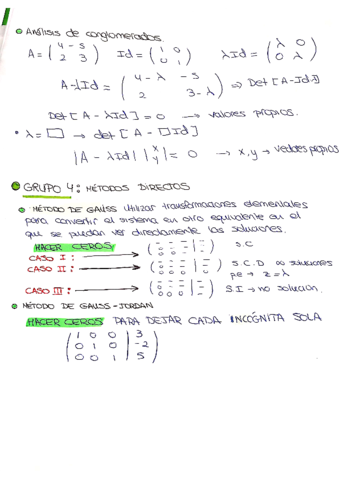 Análisis de conglomerados.
A = ( 4 -5 ; 2 3 )   Id = ( 1 0 ; 0 1 )   λId = ( λ 0 ; 0 λ )
A-λId = ( 4-λ -5 ; 2 3-λ ) ⇒ Det [A-Id·λ]
Det [A-λId] = 0 → valores propios.
• λ = □ → det [A - □Id]
|A - λId| |x y| = 0 → x, y → vectores propios
GRUPO 4: MÉTODOS DIRECTOS
MÉTODO DE GAUSS utilizar transformaciones elementales
para convertir el sistema en otro equivalente en el
que se puedan ver directamente las soluciones.
HACER CEROS
CASO I: → S.C
CASO II: → ( 0 0 0 | ) S.C.D ∞ soluciones
pe → z = λ
CASO III: → ( 0 0 0 | ) S.I → no solucion.
MÉTODO DE GAUSS-JORDAN
HACER CEROS PARA DEJAR CADA INCÓGNITA SOLA
( 1 0 0 | 3
0 1 0 | -2
0 0 1 | 5 )